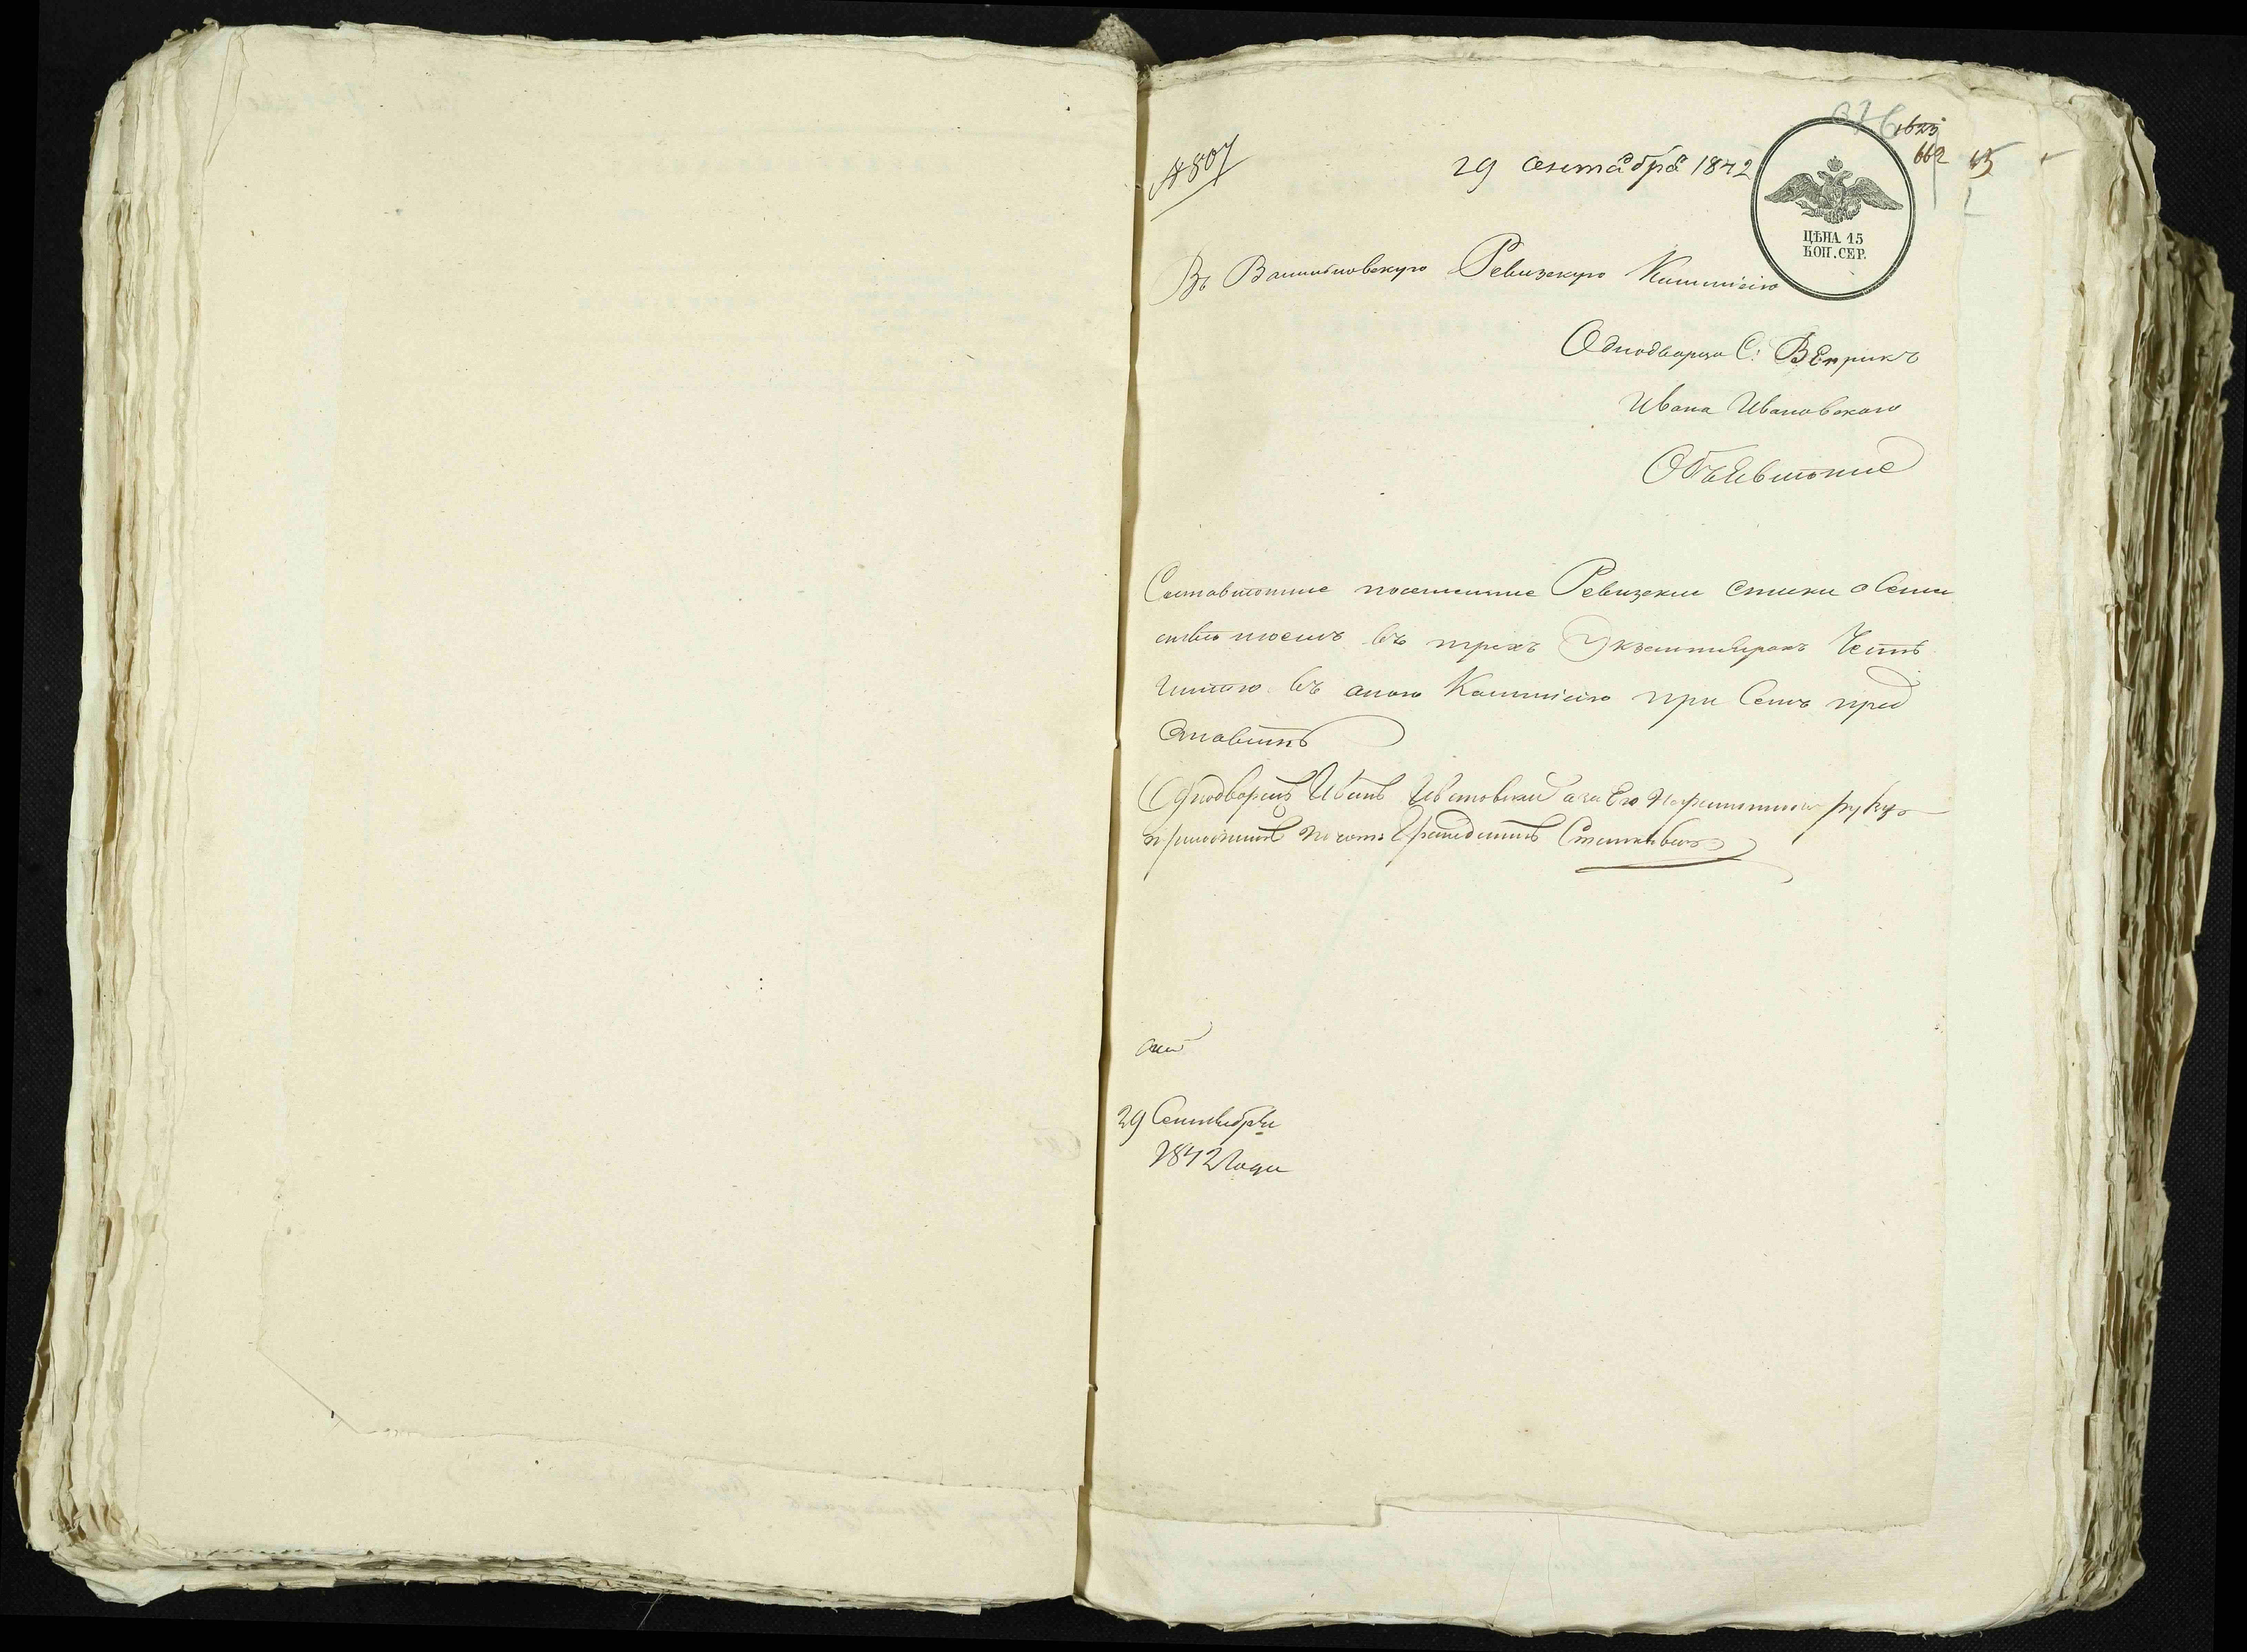 № 807
29 сентября 1842
1623
662
15
ЦѢНА 15
КОП. СЕР.
Въ Васильковскую Ревизскую Коммисію
Однодворца С: Веприкъ
Ивана Ивановскаго
Объявленіе
Составленные посемейные Ревизскіе списки о Семи
ствѣ моемъ въ трехъ Экземплярахъ Честь
имѣю въ оною Коммисію при Семъ пред
ставить
Однодворецъ Иванъ Ивановскій а за его неграмотного руку
приложилъ
29 Сентября
1842 Года